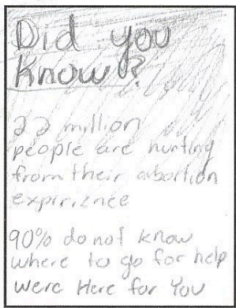 Did you
Know?
22 million
people are hurting
from their abortion
exprirznce
90% do not know
where to go for help
were Here for You